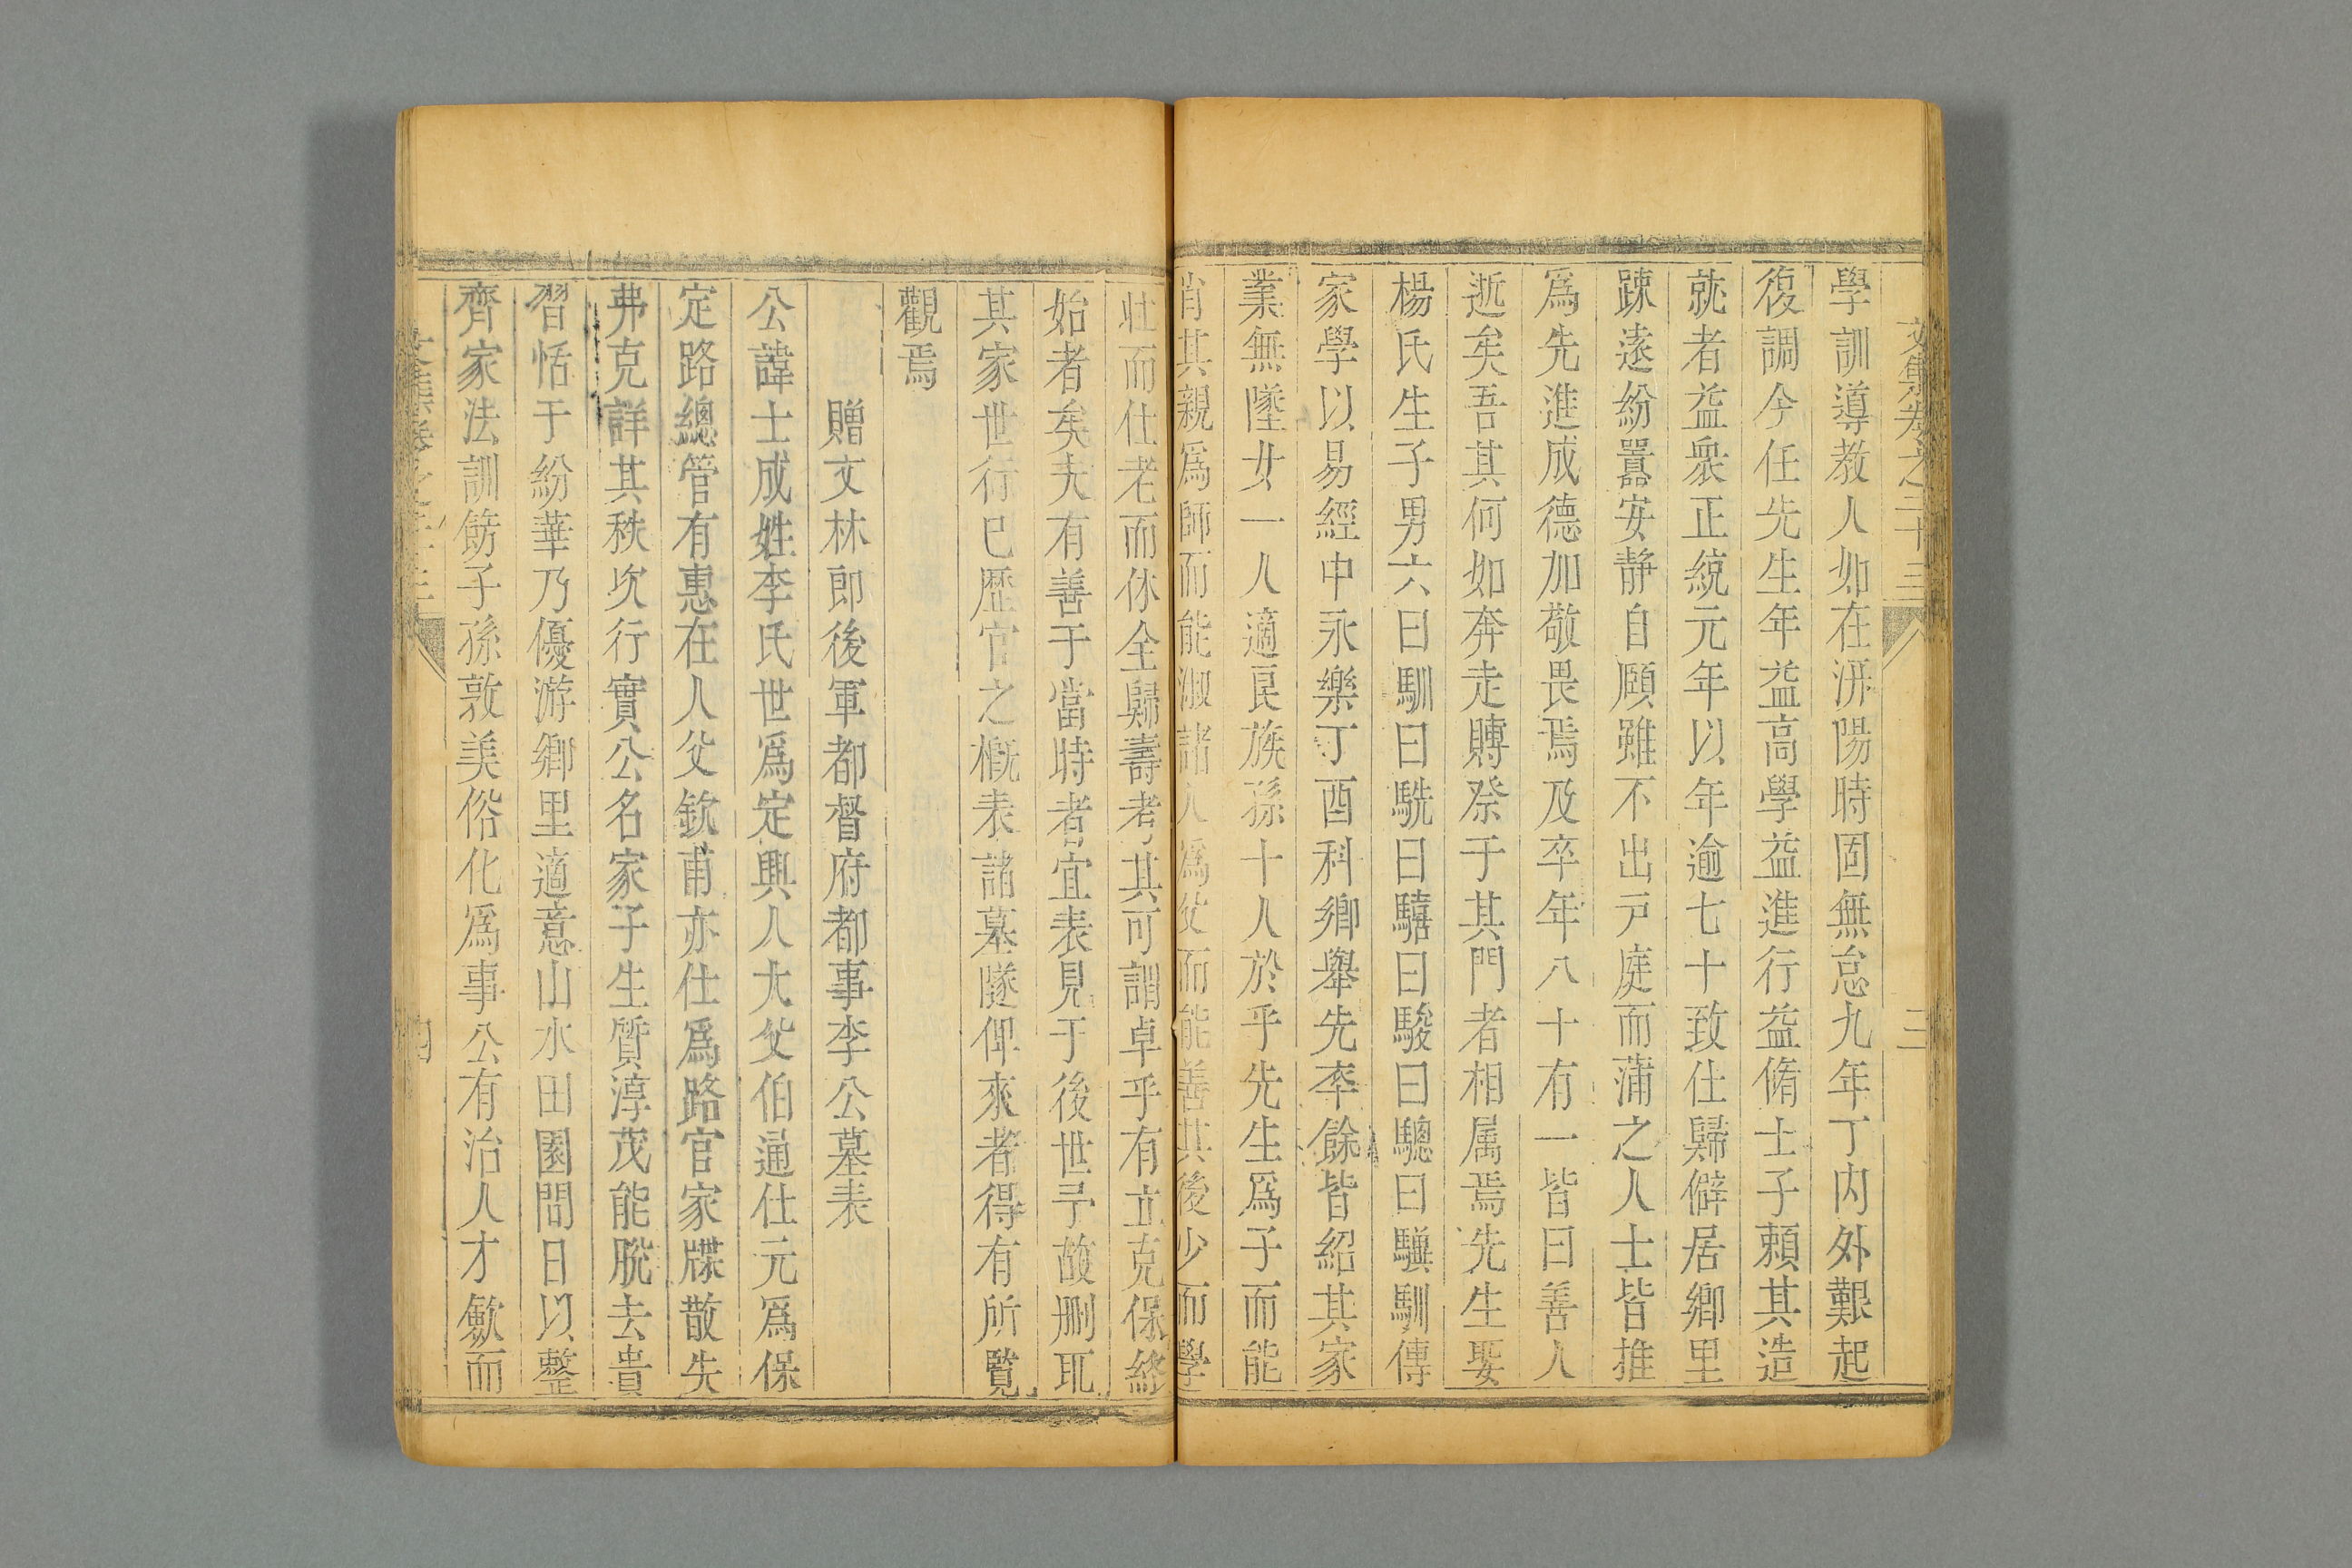 文集卷之二十三
三
學訓導教人如在洴陽時固無怠九年丁内外艱起
復調今任先生年益高學益進行益脩士子頼其造
就者益衆正統元年以年逾七十致仕歸僻居鄉里
踈逺紛囂安静自頤雖不出戸庭而蒲之人士皆推
爲先進成德加敬畏焉及卒年八十有一皆曰善人
逝矣吾其何如奔走賻祭于其門者相属焉先生娶
楊氏生子男六曰馴曰駪曰驨曰駿曰驄曰驥馴傳
家學以易經中永樂丁酉科鄉舉先卒餘皆紹其家
業無墜女一人適良族孫十人於乎先生爲子而能
肖其親爲師而能淑諸人爲父而能善其後少而學
壮而仕老而休全歸壽考其可謂卓乎有立克保終
始者矣夫有善于當時者宜表見于後世予故刪取
其家世行巳歷官之概表諸墓隧俾來者得有所覽
觀焉
贈文林郎後軍都督府都事李公墓表
公諱士成姓李氏世爲定興人大父伯通仕元爲保
定路總管有惠在人父欽甫亦仕爲路官家牒散失
弗克詳其秩次行實公名家子生質淳茂能脱去貴
習恬于紛華乃優游鄉里適意山水田園間日以整
齊家法訓飭子孫敦美俗化爲事公有治人才斂而
文集卷之二十三
四